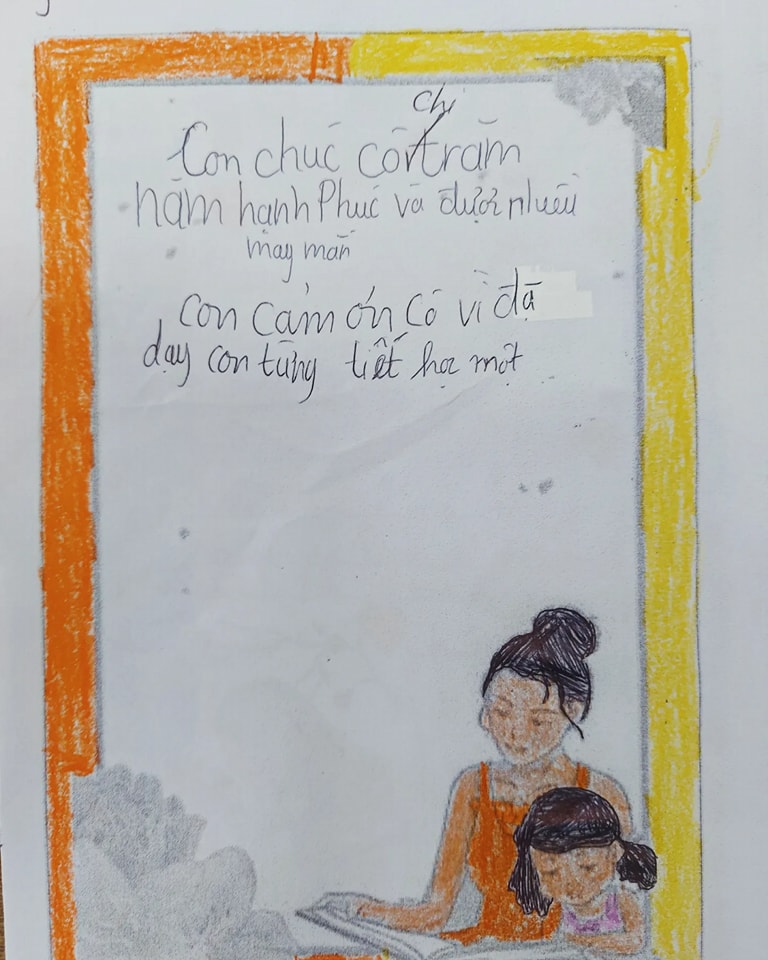 Con chúc cô Chi trăm
năm hạnh Phúc và được nhiều
may mắn
con cảm ơn cô vì đã
dạy con từng tiết học một